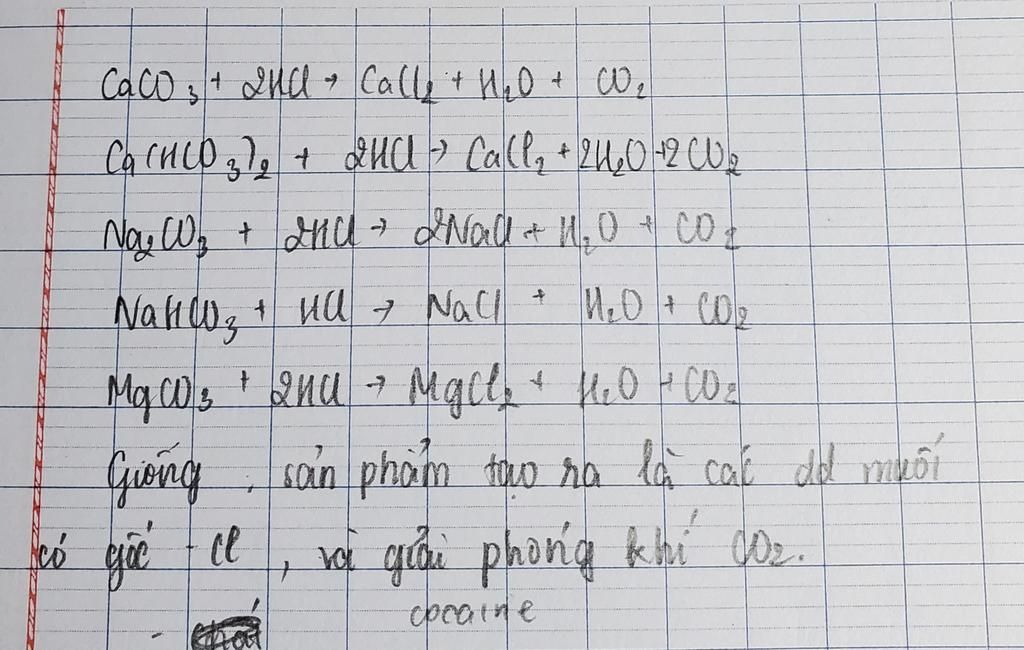 CaCO₃ + 2HCl → CaCl₂ + H₂O + CO₂
Ca(HCO₃)₂ + 2HCl → CaCl₂ + 2H₂O + 2CO₂
Na₂CO₃ + 2HCl → 2NaCl + H₂O + CO₂
NaHCO₃ + HCl → NaCl + H₂O + CO₂
MgCO₃ + 2HCl → MgCl₂ + H₂O + CO₂
Giống : sản phẩm tạo ra là các dd muối
có gốc -Cl , và giải phóng khí CO₂.
cocaine
-